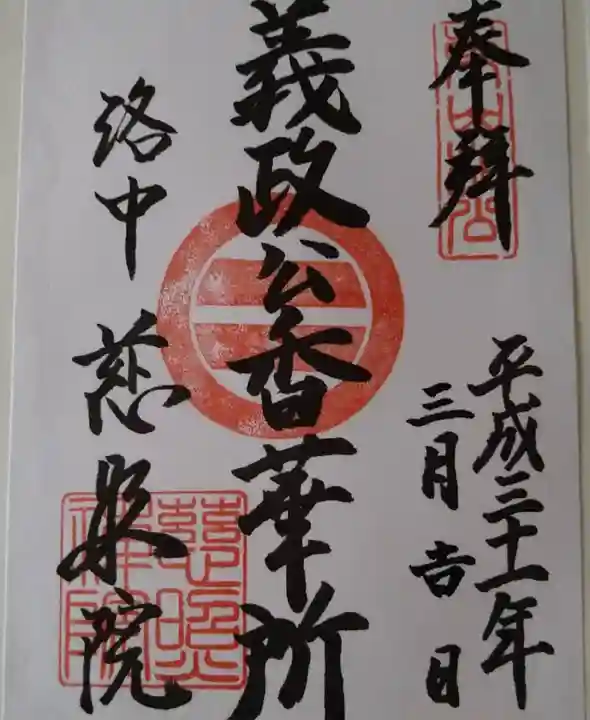 奉拝
平成三十一年
三月吉日
義政公香華所
洛中 慈照院
慈照
禪院